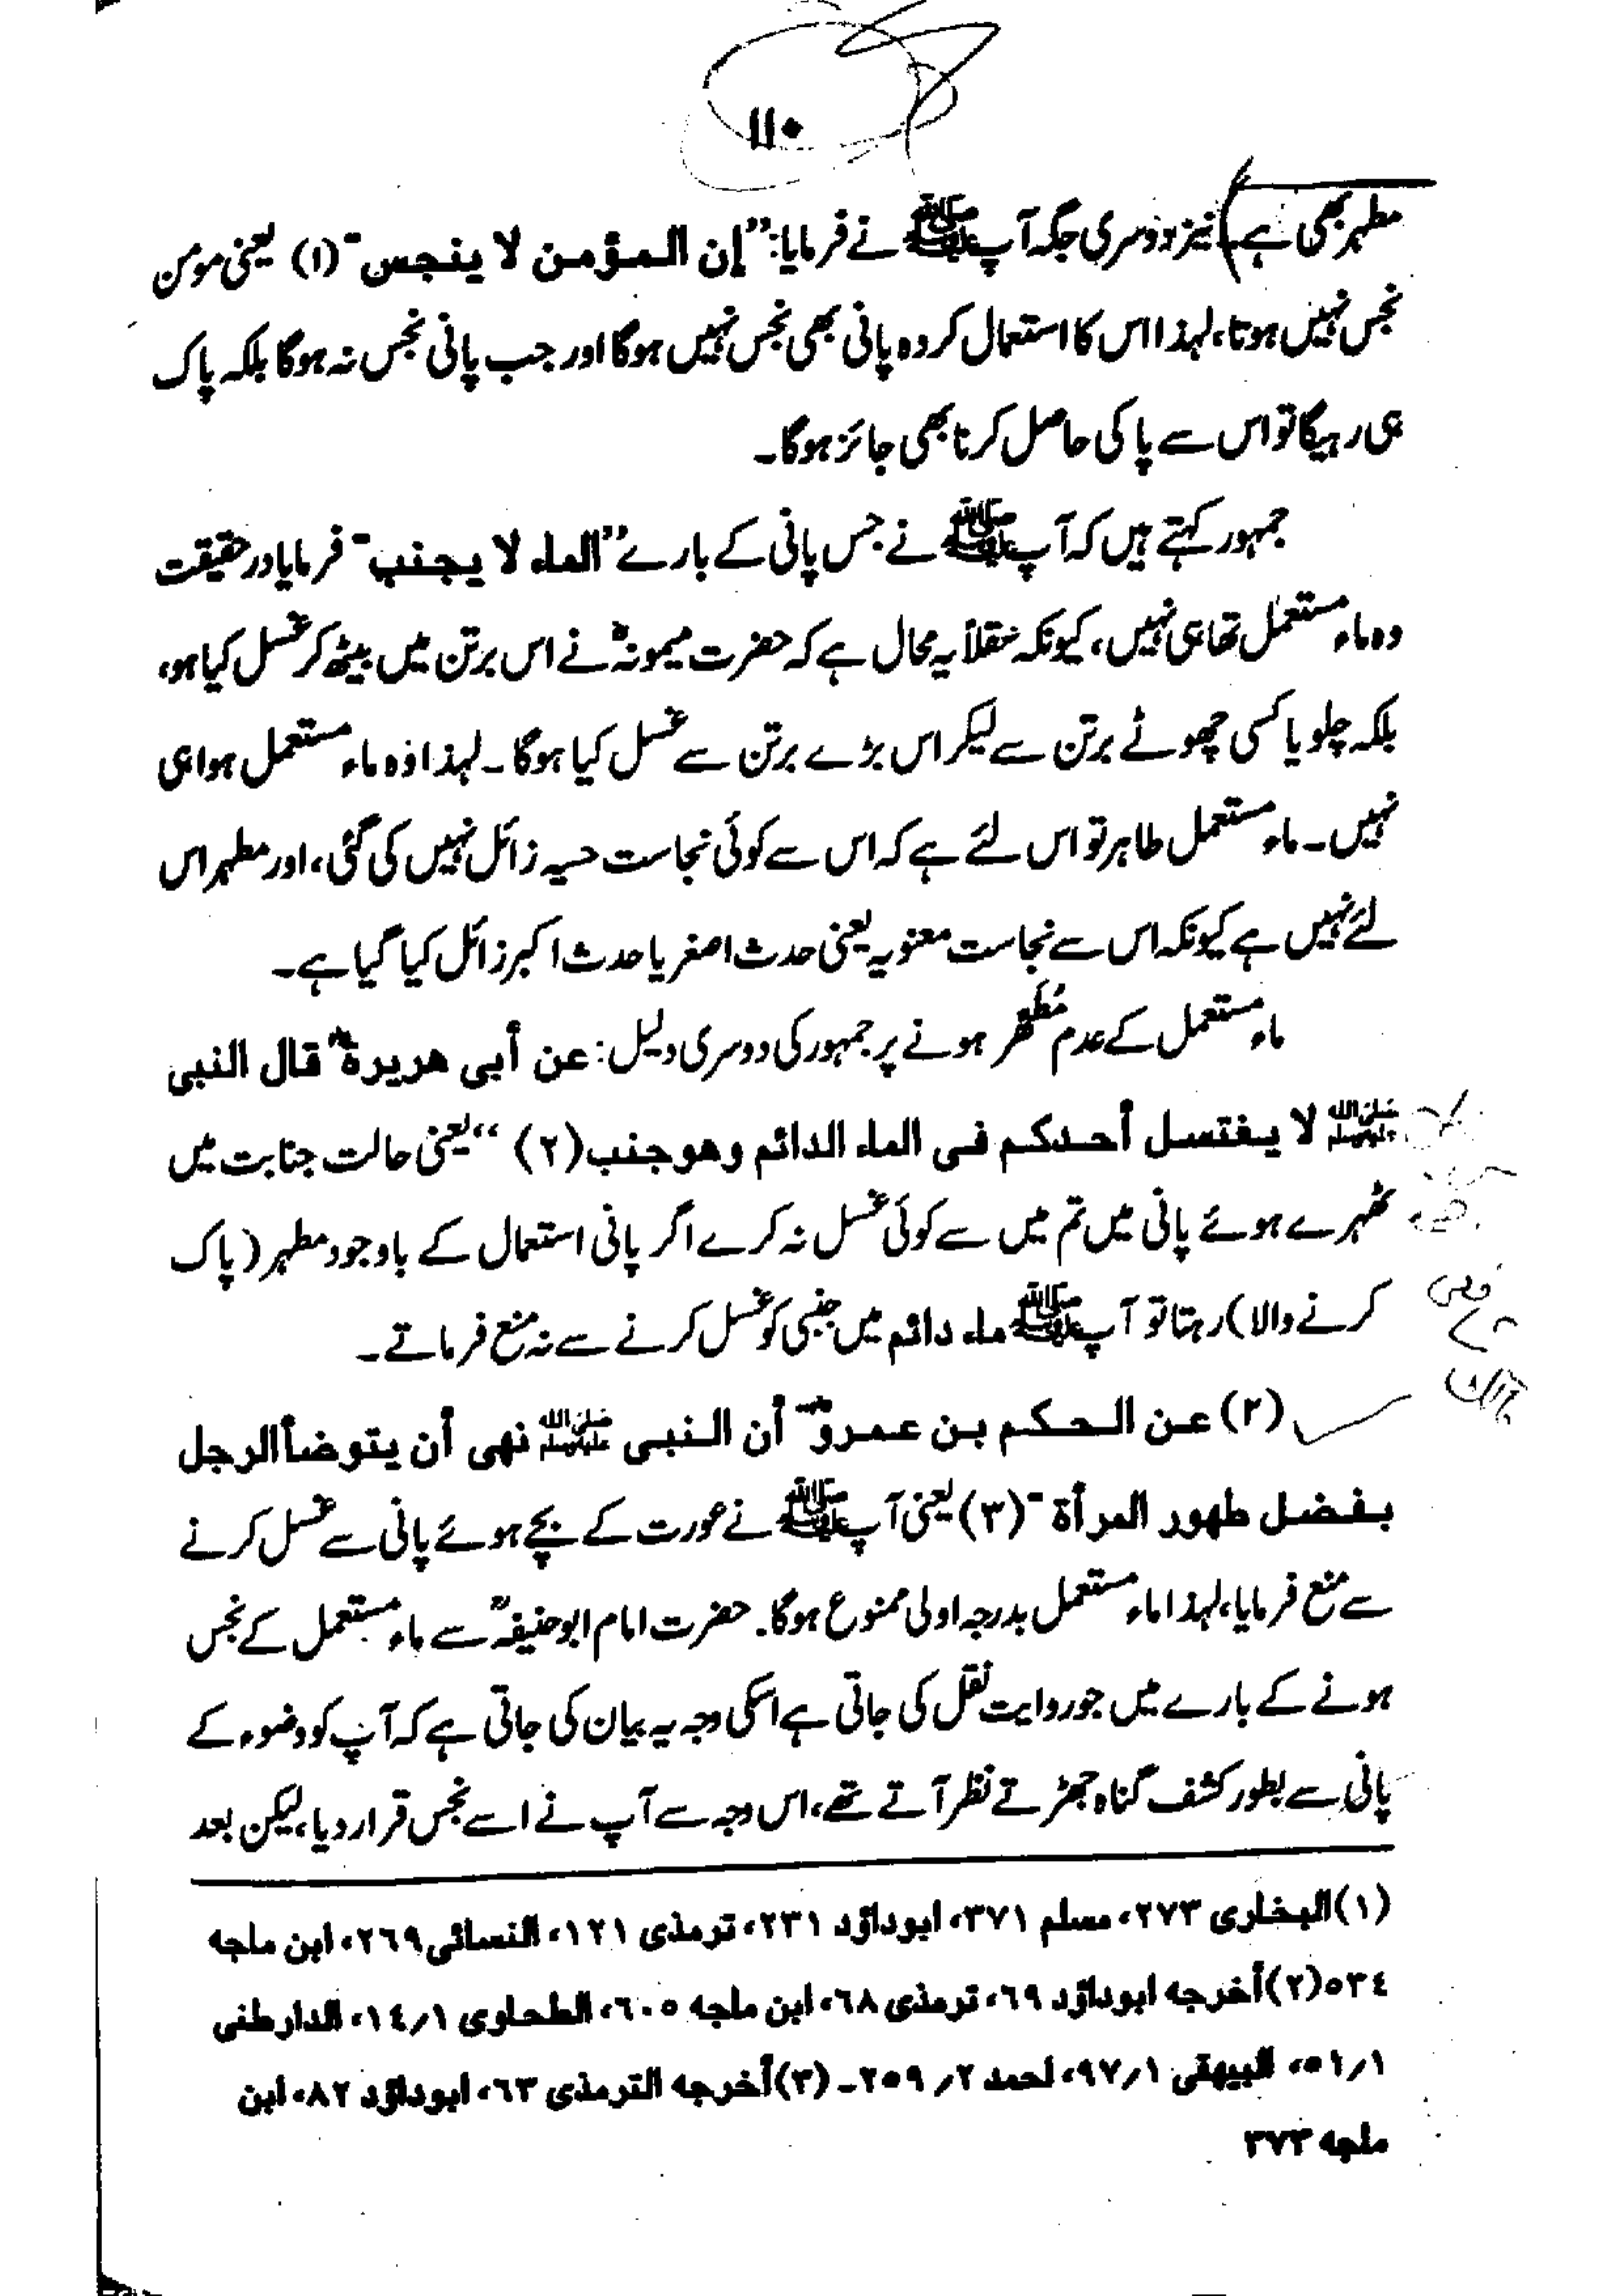 ۱۱۰
مطہر بھی ہے) نیز دوسری جگہ آپ ﷺ نے فرمایا: ”إن المؤمن لا ینجس“ (۱) یعنی مومن
نجس نہیں ہوتا، لہذا اس کا استعمال کردہ پانی بھی نجس نہیں ہوگا اور جب پانی نجس نہ ہوگا بلکہ پاک
ہی رہیگا تو اس سے پاکی حاصل کرنا بھی جائز ہوگا۔
جمہور کہتے ہیں کہ آپ ﷺ نے جس پانی کے بارے ”الماء لا یجنب“ فرمایا درحقیقت
وہ ماء مستعمل تھا ہی نہیں، کیونکہ عقلاً یہ محال ہے کہ حضرت میمونہؓ نے اس برتن میں بیٹھ کر غسل کیا ہو،
بلکہ چلو یا کسی چھوٹے برتن سے لیکر اس بڑے برتن سے غسل کیا ہوگا۔ لہذا وہ ماء مستعمل ہوا ہی
نہیں۔ ماء مستعمل طاہر تو اس لئے ہے کہ اس سے کوئی نجاست حسیہ زائل نہیں کی گئی، اور مطہر اس
لئے نہیں ہے کیونکہ اس سے نجاست معنویہ یعنی حدث اصغر یا حدث اکبر زائل کیا گیا ہے۔
ماء مستعمل کے عدم مُطَھِّر ہونے پر جمہور کی دوسری دلیل: عن أبی ھریرةؓ قال النبی
ﷺ لا یغتسل أحدکم فی الماء الدائم وھو جنب (۲) “ یعنی حالت جنابت میں
ٹھہرے ہوئے پانی میں تم میں سے کوئی غسل نہ کرے اگر پانی استعمال کے باوجود مطہر (پاک
کرنے والا) رہتا تو آپ ﷺ ماء دائم میں جنبی کو غسل کرنے سے نہ منع فرماتے۔
(۲) عن الحکم بن عمروؓ أن النبی ﷺ نھی أن یتوضأ الرجل
بفضل طھور المرأة“ (۳) یعنی آپ ﷺ نے عورت کے بچے ہوئے پانی سے غسل کرنے
سے منع فرمایا، لہذا ماء مستعمل بدرجہ اولی ممنوع ہوگا۔ حضرت امام ابوحنیفہؒ سے ماء مستعمل کے نجس
ہونے کے بارے میں جو روایت نقل کی جاتی ہے اسکی وجہ یہ بیان کی جاتی ہے کہ آپ کو وضوء کے
پانی سے بطور کشف گناہ جھڑتے نظر آتے تھے، اس وجہ سے آپ نے اسے نجس قرار دیا، لیکن بعد
(۱) البخاری ۲۷۳، مسلم ۳۷۱، ابوداؤد ۲۳۱، ترمذی ۱۲۱، النسائی ۲۶۹، ابن ماجہ
۵۳٤ (۲) أخرجہ ابوداؤد ٦۹، ترمذی ٦۸، ابن ماجہ ٦۰۵، الطحاوی ۱/۱٤، الدارطنی
۵۱/۱، البیھقی ۹۷/۱، احمد ۲/ ۲۵۹۔ (۳) أخرجہ الترمذی ٦۳، ابوداؤد ۸۲، ابن
ماجہ ۳۷۳